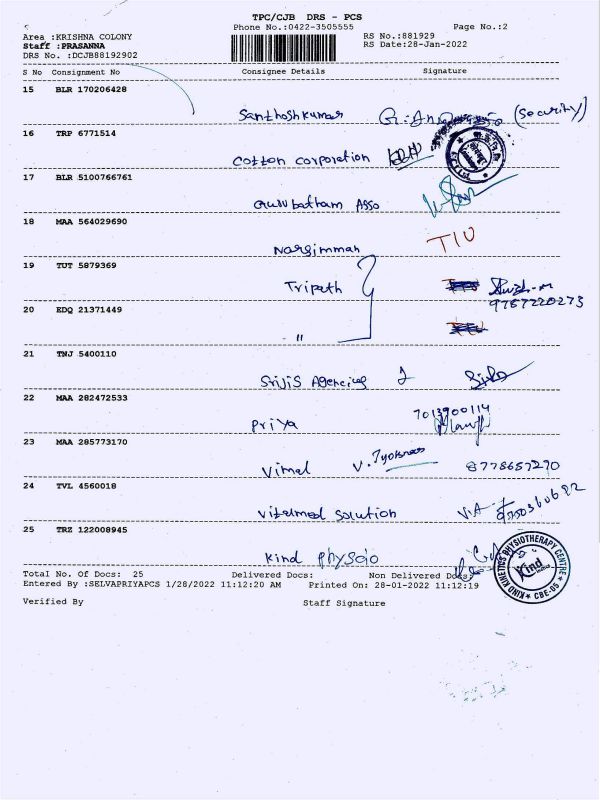 TPC/CJB DRS - PCS
Phone No.:0422-3505555 Page No.:2
Area :KRISHNA COLONY RS No:881929
Staff :PRASANNA RS Date:28-Jan-2022
DRS No. :DCJB88192902
S No Consignment No Consignee Details Signature
15 BLR 170206428
Santhoshkumar (Security)
16 TRP 6771514
Cotton corporation
17 BLR 5100766761
Asso
18 MAA 564029690
Narsimmah TIU
19 TUT 5879369
Tripath
9787220273
20 EDQ 21371449
"
21 TNJ 5400110
Srijis Agencies
22 MAA 282472533
7013900114
Priya
23 MAA 285773170
Vimal 8778657270
24 TVL 4560018
Vitalmed Solution
25 TRZ 122008945
Kind physio
KIND KINETICS PHYSIOTHERAPY CENTRE
Kind
CBE-05
Total No. Of Docs: 25 Delivered Docs: Non Delivered Docs:
Entered By :SELVAPRIYAPCS 1/28/2022 11:12:20 AM Printed On: 28-01-2022 11:12:19
Verified By Staff Signature